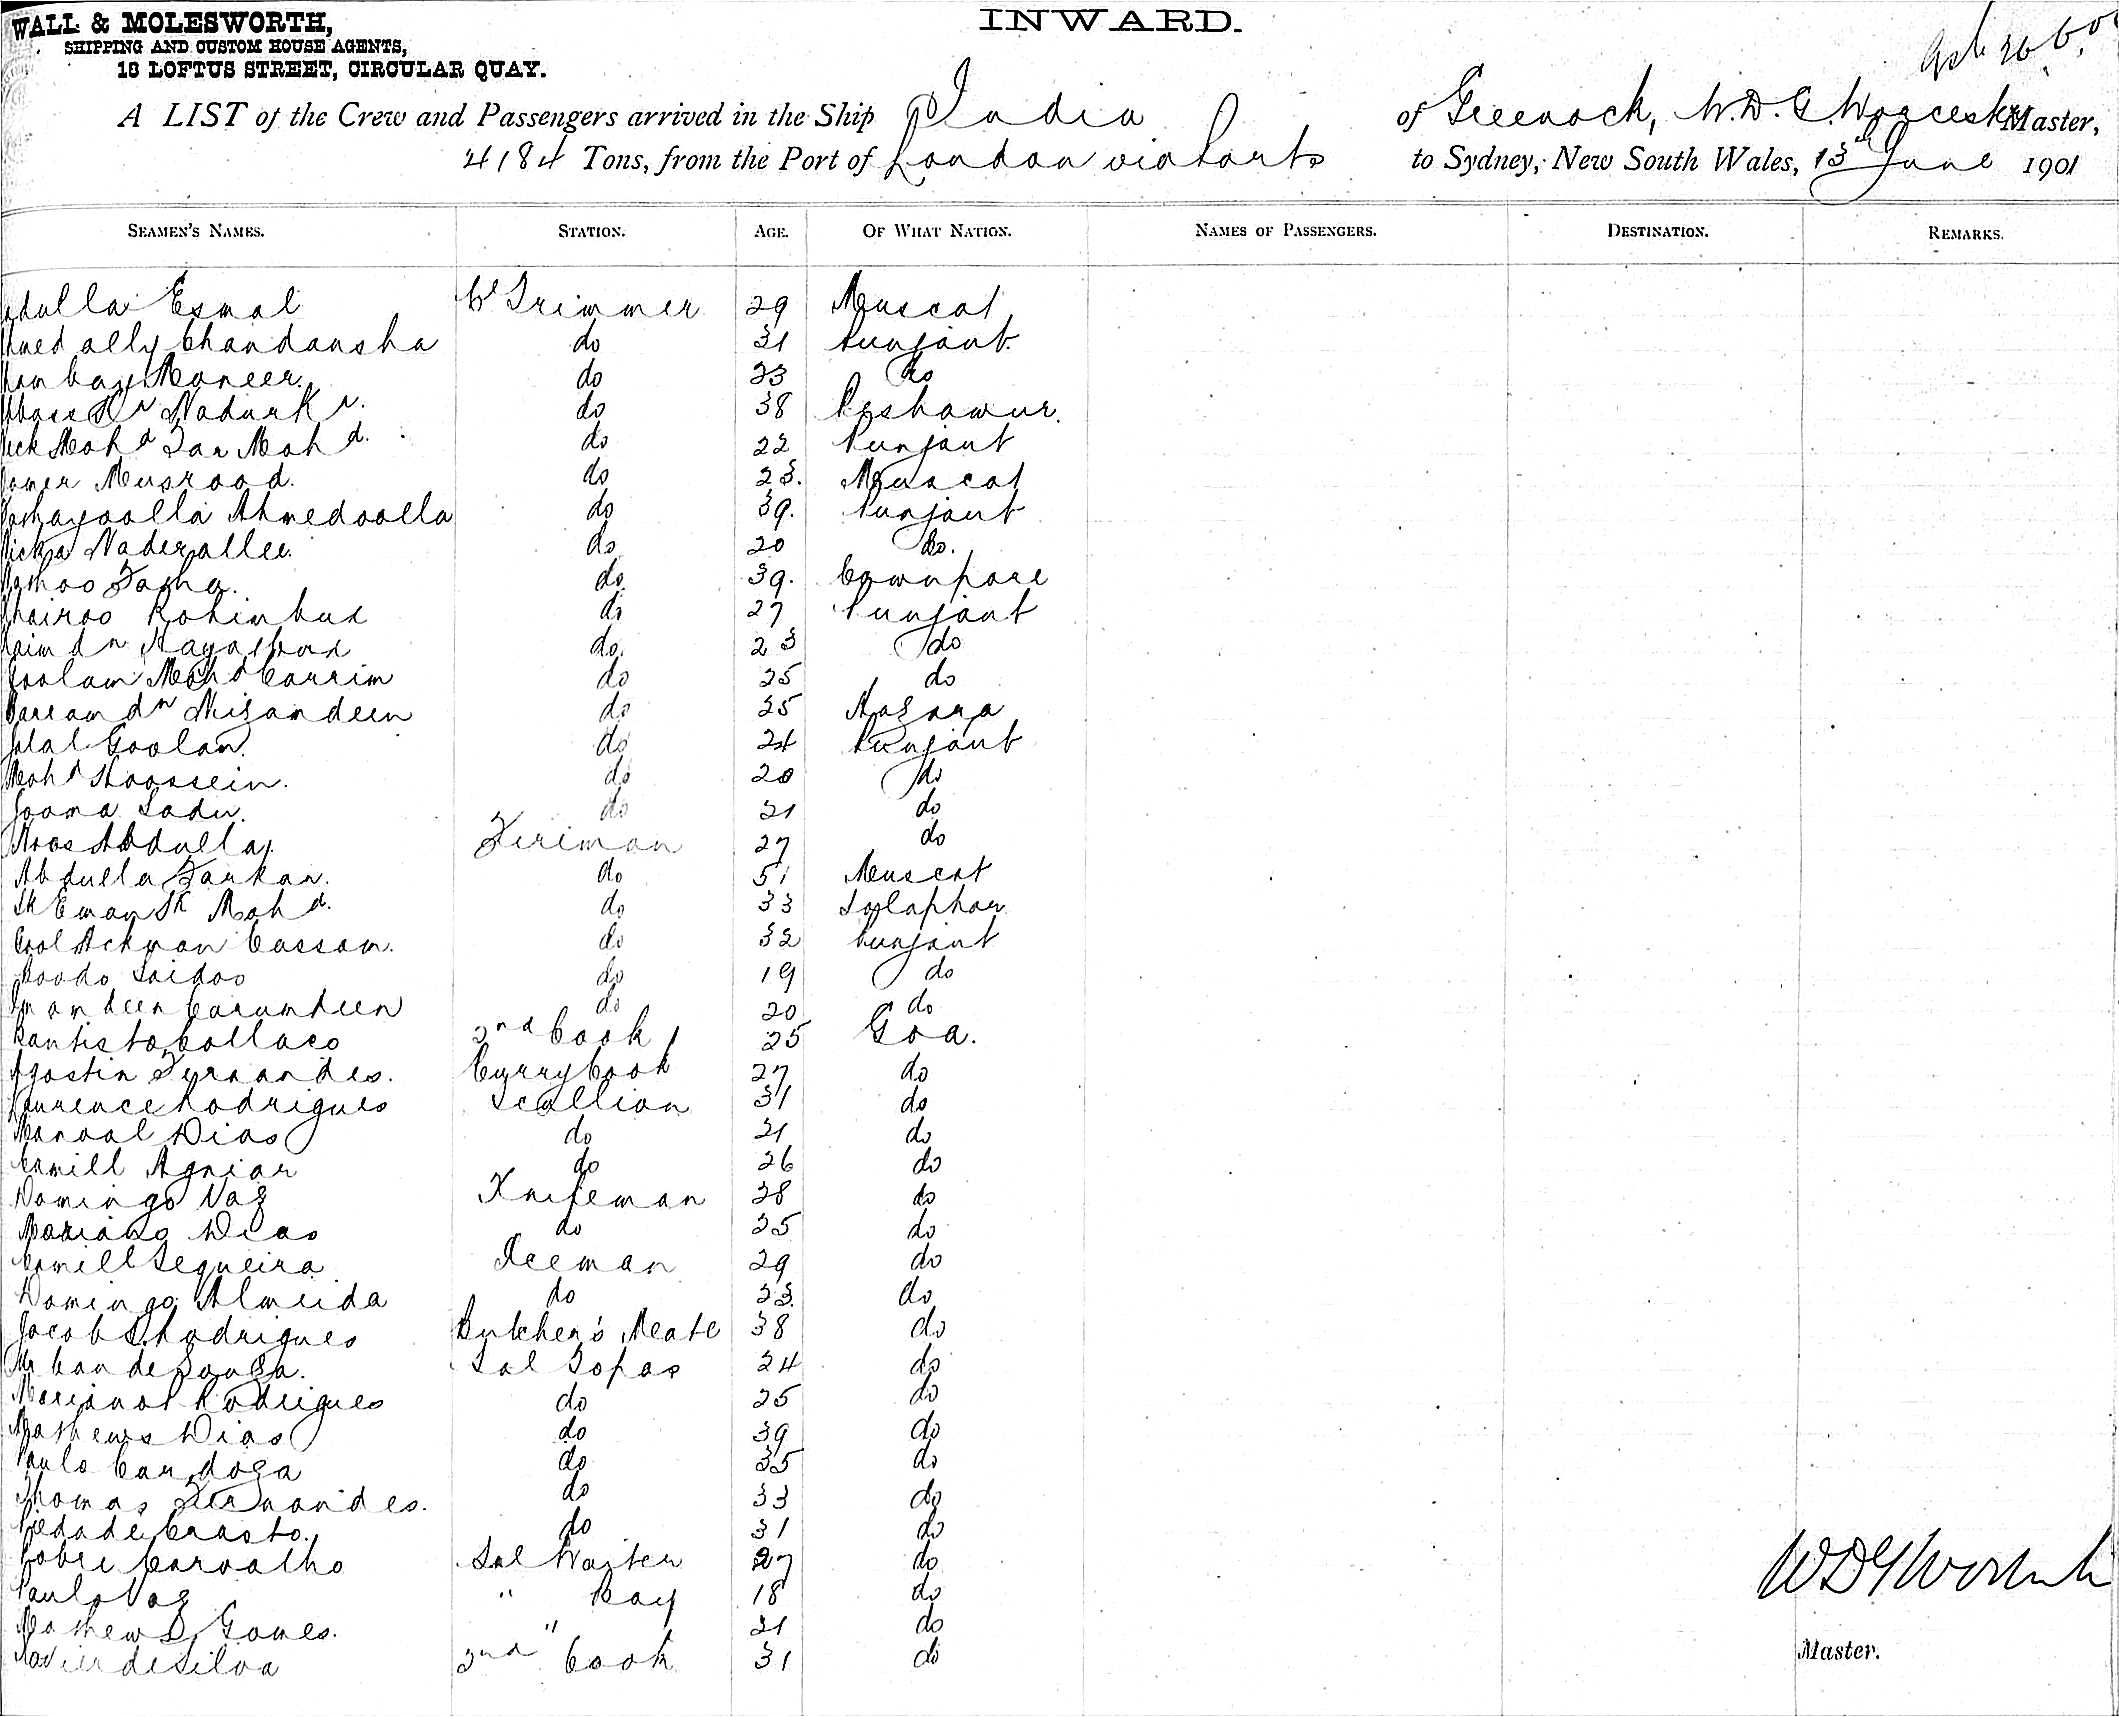 WALL & MOLESWORTH,
SHIPPING AND CUSTOM HOUSE AGENTS,
18 LOFTUS STREET, CIRCULAR QUAY.
INWARD.
A LIST of the Crew and Passengers arrived in the Ship India of Greenock, W. D. G. Worcester Master,
4184 Tons, from the Port of London via Ports to Sydney, New South Wales, 13th June 1901
SEAMEN'S NAMES. STATION. AGE. OF WHAT NATION. NAMES OF PASSENGERS. DESTINATION. REMARKS.
Esmal Cl Trimmer 29 Muscat
ally Chandansha do 31 Punjaub
do 23 do
do 38 Peshawur.
Mohd Mohd. do 22 Punjaub
Musrood. do 23. Muscat
Ahmedoolla do 39. Punjaub
Naderallee. do 20 do.
do 39. Cawnpore
Kohinbux do 27 Punjaub
do. 23 do
Goolam Mohd Carrim do 25 do
Nizamdeen do 25 Hazara
Jalal Goolam. do 24 Punjaub
Mohd Hoossein. do 20 do
Jooma Sadu. do 21 do
Abdulla. Fireman 27 do
Abdulla do 51 Muscat
Sk Eman Sk Mohd. do 33
Cassam. do 32 Punjaub
Saidoo do 19 do
Carumdeen do 20 do
Bautista Collaco 2nd Cook 25 Goa.
Agostin Fernandes. Curry Cook 27 do
Laurence Rodrigues Scullion 31 do
Manoal Dias do 21 do
Camill Agniar do 26 do
Domingo Vaz Knifeman 28 do
Mariano Dias do 25 do
Camill Sequeira Iceman 29 do
Domingo Almeida do 33. do
Jacob S. Rodrigues Butcher's Mate 38 do
de Souza. Sal Topas 24 do
Rodrigues do 25 do
Mathews Dias do 39 do
Paulo Cardoza do 35 do
Thomas Fernandes. do 33 do
Piedade Crasto. do 31 do
Carvalho Sal Waiter 27 do
Paulo Vaz " Boy 18 do
Mathew D. Gomes. " 21 do
Xavier de Silva 2nd Cook 31 do
Master.